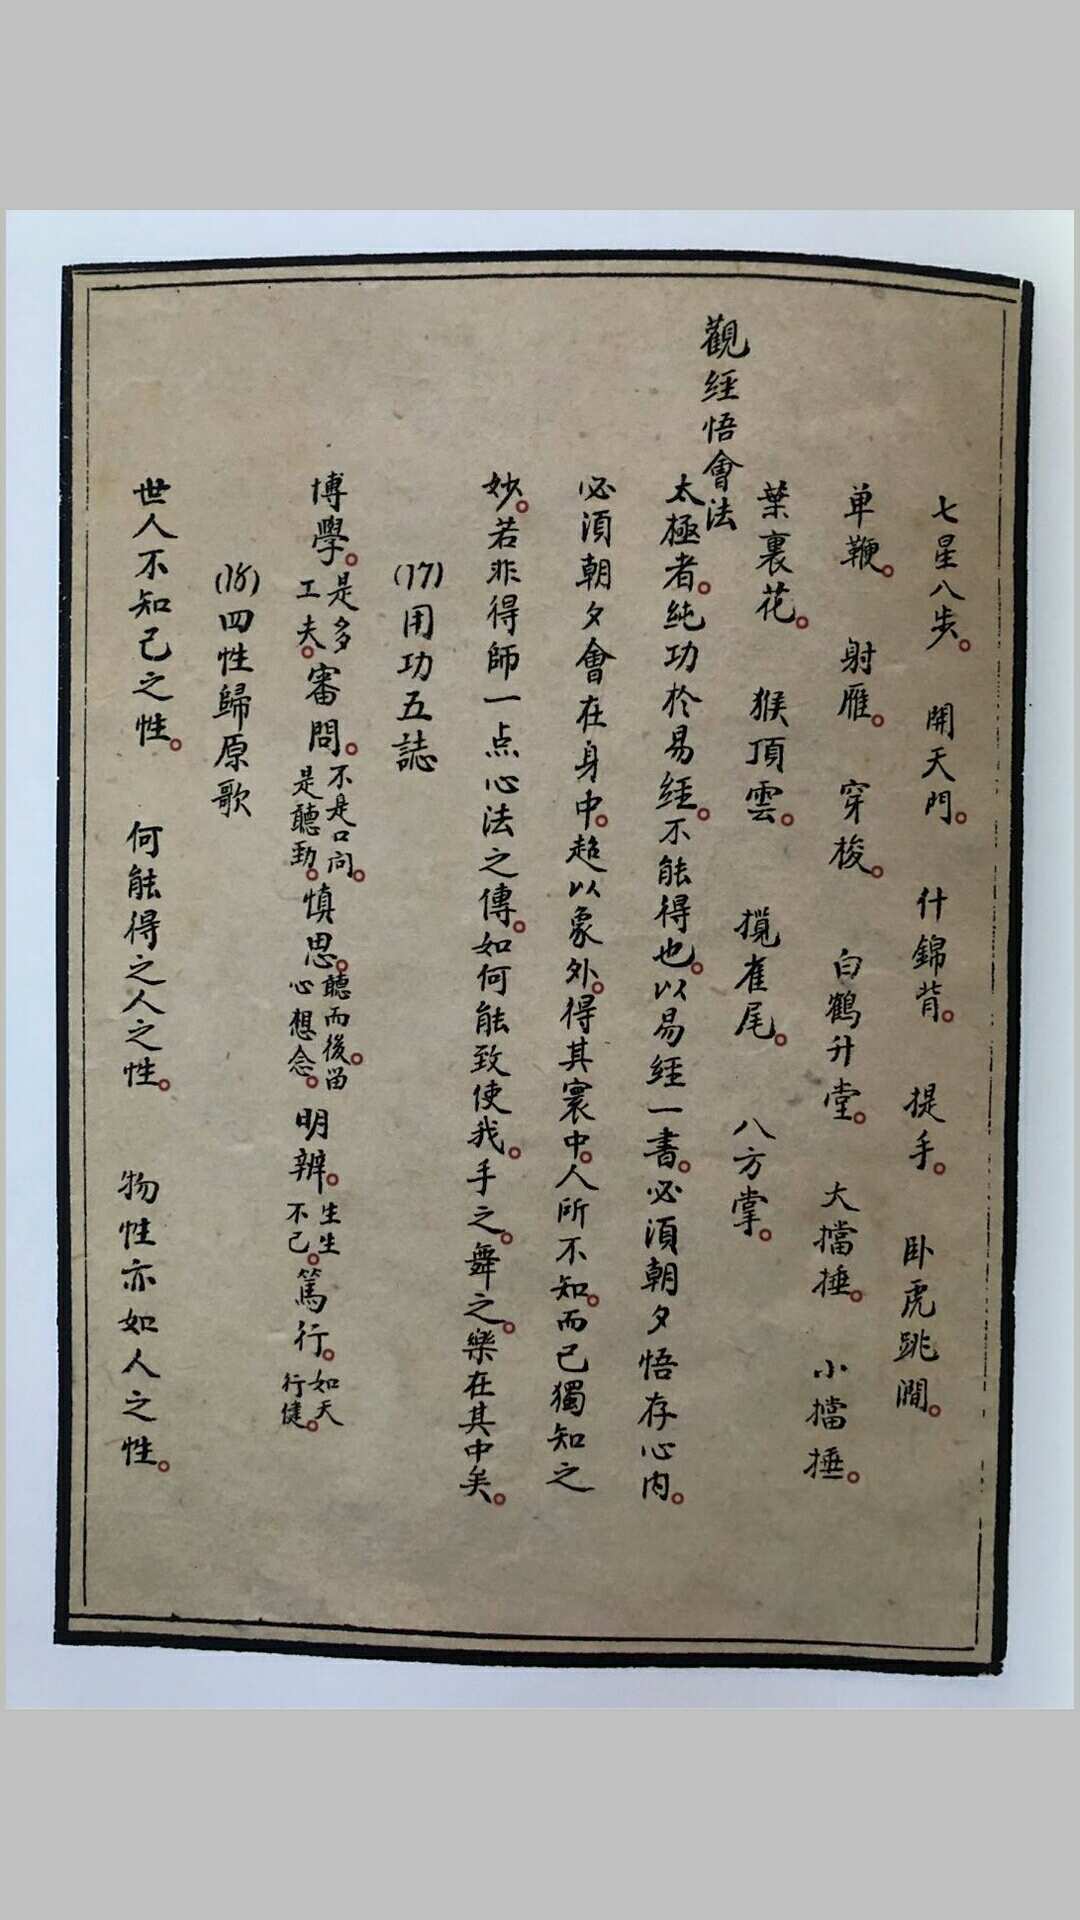 七星八步。 開天門。 什錦背。 提手。 卧虎跳澗。
单鞭。 射雁。 穿梭。 白鶴升堂。 大擋捶。 小擋捶。
葉裏花。 猴頂雲。 攬雀尾。 八方掌。
觀經悟會法
太極者。純功於易經。不能得也。以易經一書。必須朝夕悟存心内。
必須朝夕會在身中。超以象外。得其寰中。人所不知。而己獨知之
妙。若非得師一点心法之傳。如何能致使我。手之。舞之。樂在其中矣。
(17)用功五誌
博學。是多工夫。審問。不是口问。是聽勁。慎思。聽而後。留心想念。明辨。生生不已。篤行。如天行健。
(18)四性歸原歌
世人不知己之性。 何能得之人之性。 物性亦如人之性。